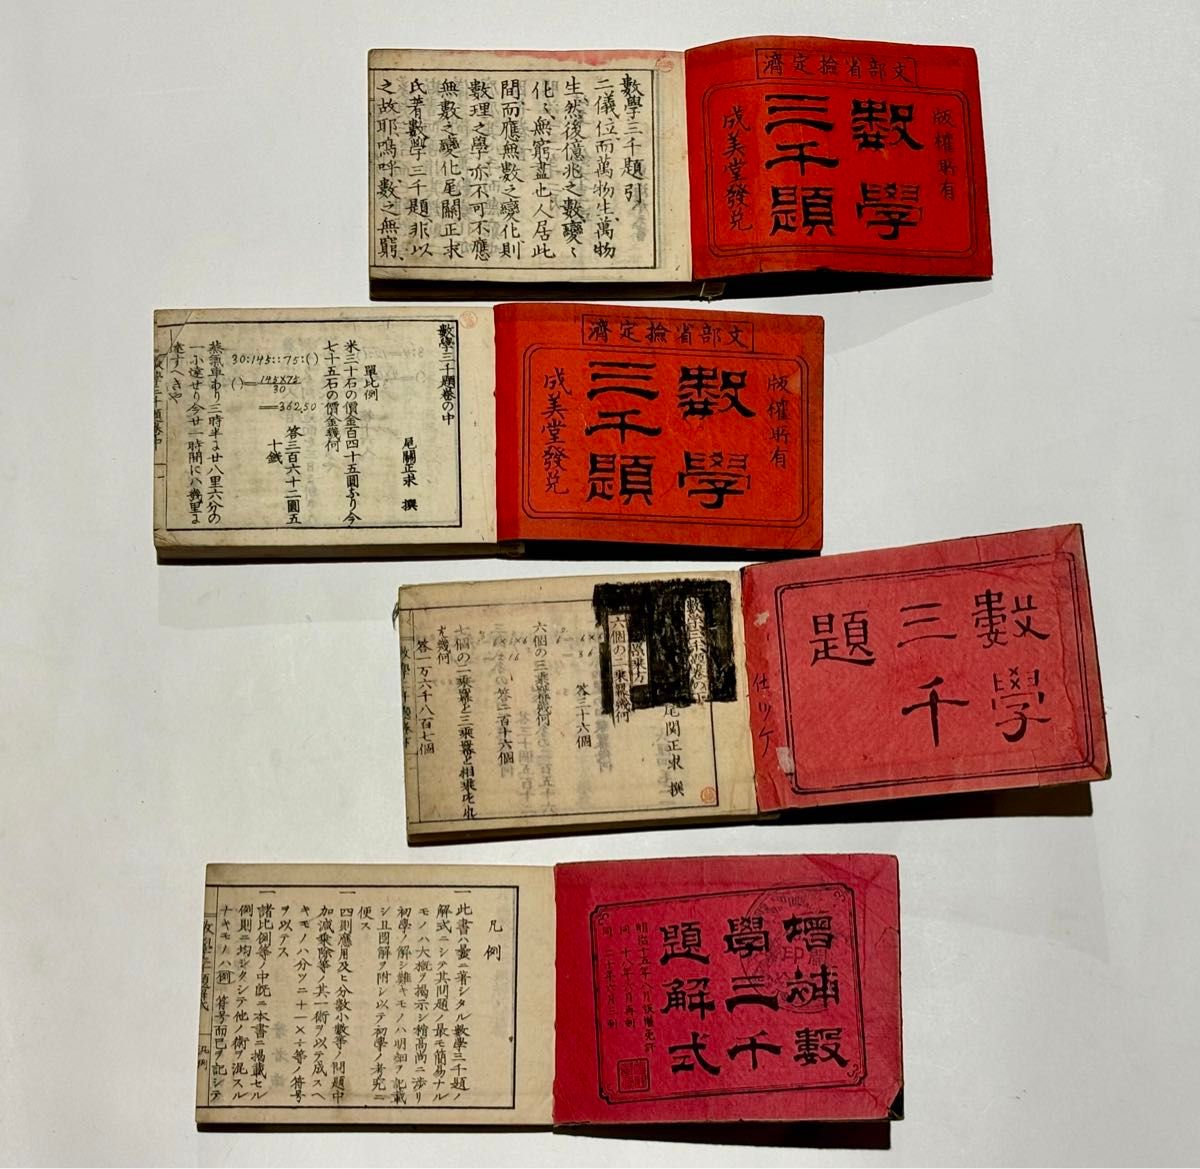 文部省撿定濟
版權所有
數學
三千題
成美堂發兌
數學三千題引
二儀位而萬物生萬物
生然後億兆之數變〻
化〻無窮盡也人居此
間而應無數之變化則
數理之學亦不可不應
無數之變化尾關正求
氏著數學三千題非以
之故耶嗚呼數之無窮
文部省撿定濟
版權所有
數學
三千題
成美堂發兌
數學三千題卷の中
尾關正求 撰
單比例
米三十石の價金百四十五圓なり今
七十五石の價金幾何
30:145::75:()
()=145×75/30
=362,50
答三百六十二圓五
十錢
蒸氣車あり三時半に廿八里六分の
一に達せり今廿一時間にハ幾里に
達すへきや
數學三千題卷中
數學
三千
題
仕リケ
尾関正求 撰
六個の二乗冪幾何
答三十六個
六個の三乗冪幾何
答二百十六個
七個の二乗冪と三乗冪と相乗せれ
は幾何
答一万六千八百七個
増補數
學三千
題解式
明治十五年八月版權免許
同 十八年八月再刻
同 二十年六月三刻
凡例
一此書ハ曩ニ著シタル數學三千題ノ
解式ニシテ其問題ノ最モ簡易ナル
モノハ大概ヲ揭示シ稍高尚ニ渉リ
初學ノ解シ難キモノハ明細ヲ記載
シ且圖解ヲ附シ以テ初學ノ考究ニ
便ス
一四則應用及ヒ分數小數等ノ問題中
加減乘除等ノ其一術ヲ以テ成スヘ
キモノハ分ツニ十一×÷等ノ符号
ヲ以テス
一諸比例等ノ中既ニ本書ニ揭載セル
例則ニ均シクシテ他ノ術ヲ混スル
ナキモノハ(例)符号而已ヲ記シテ
數學三千題解式
凡例